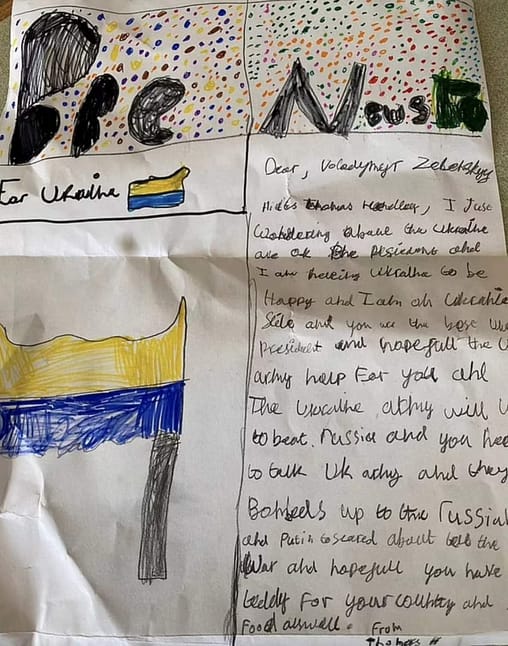 Pre News
For Ukraine
Dear, Voladymyr Zelenskyy
Thomas Hendley, I Just
Wondering about the Ukraine
are ok the president and
I am Ukraine to be
Happy and I am on Ukraine
Side and you are the best
President and hopefull the U
army help For you and
The Ukraine army will
to beat. russia and you nee
to talk UK army and they
up to the russia
and Putin to scared about the
War and hopefull you have
teddy For your country and
Food aswell. From
Thomas H